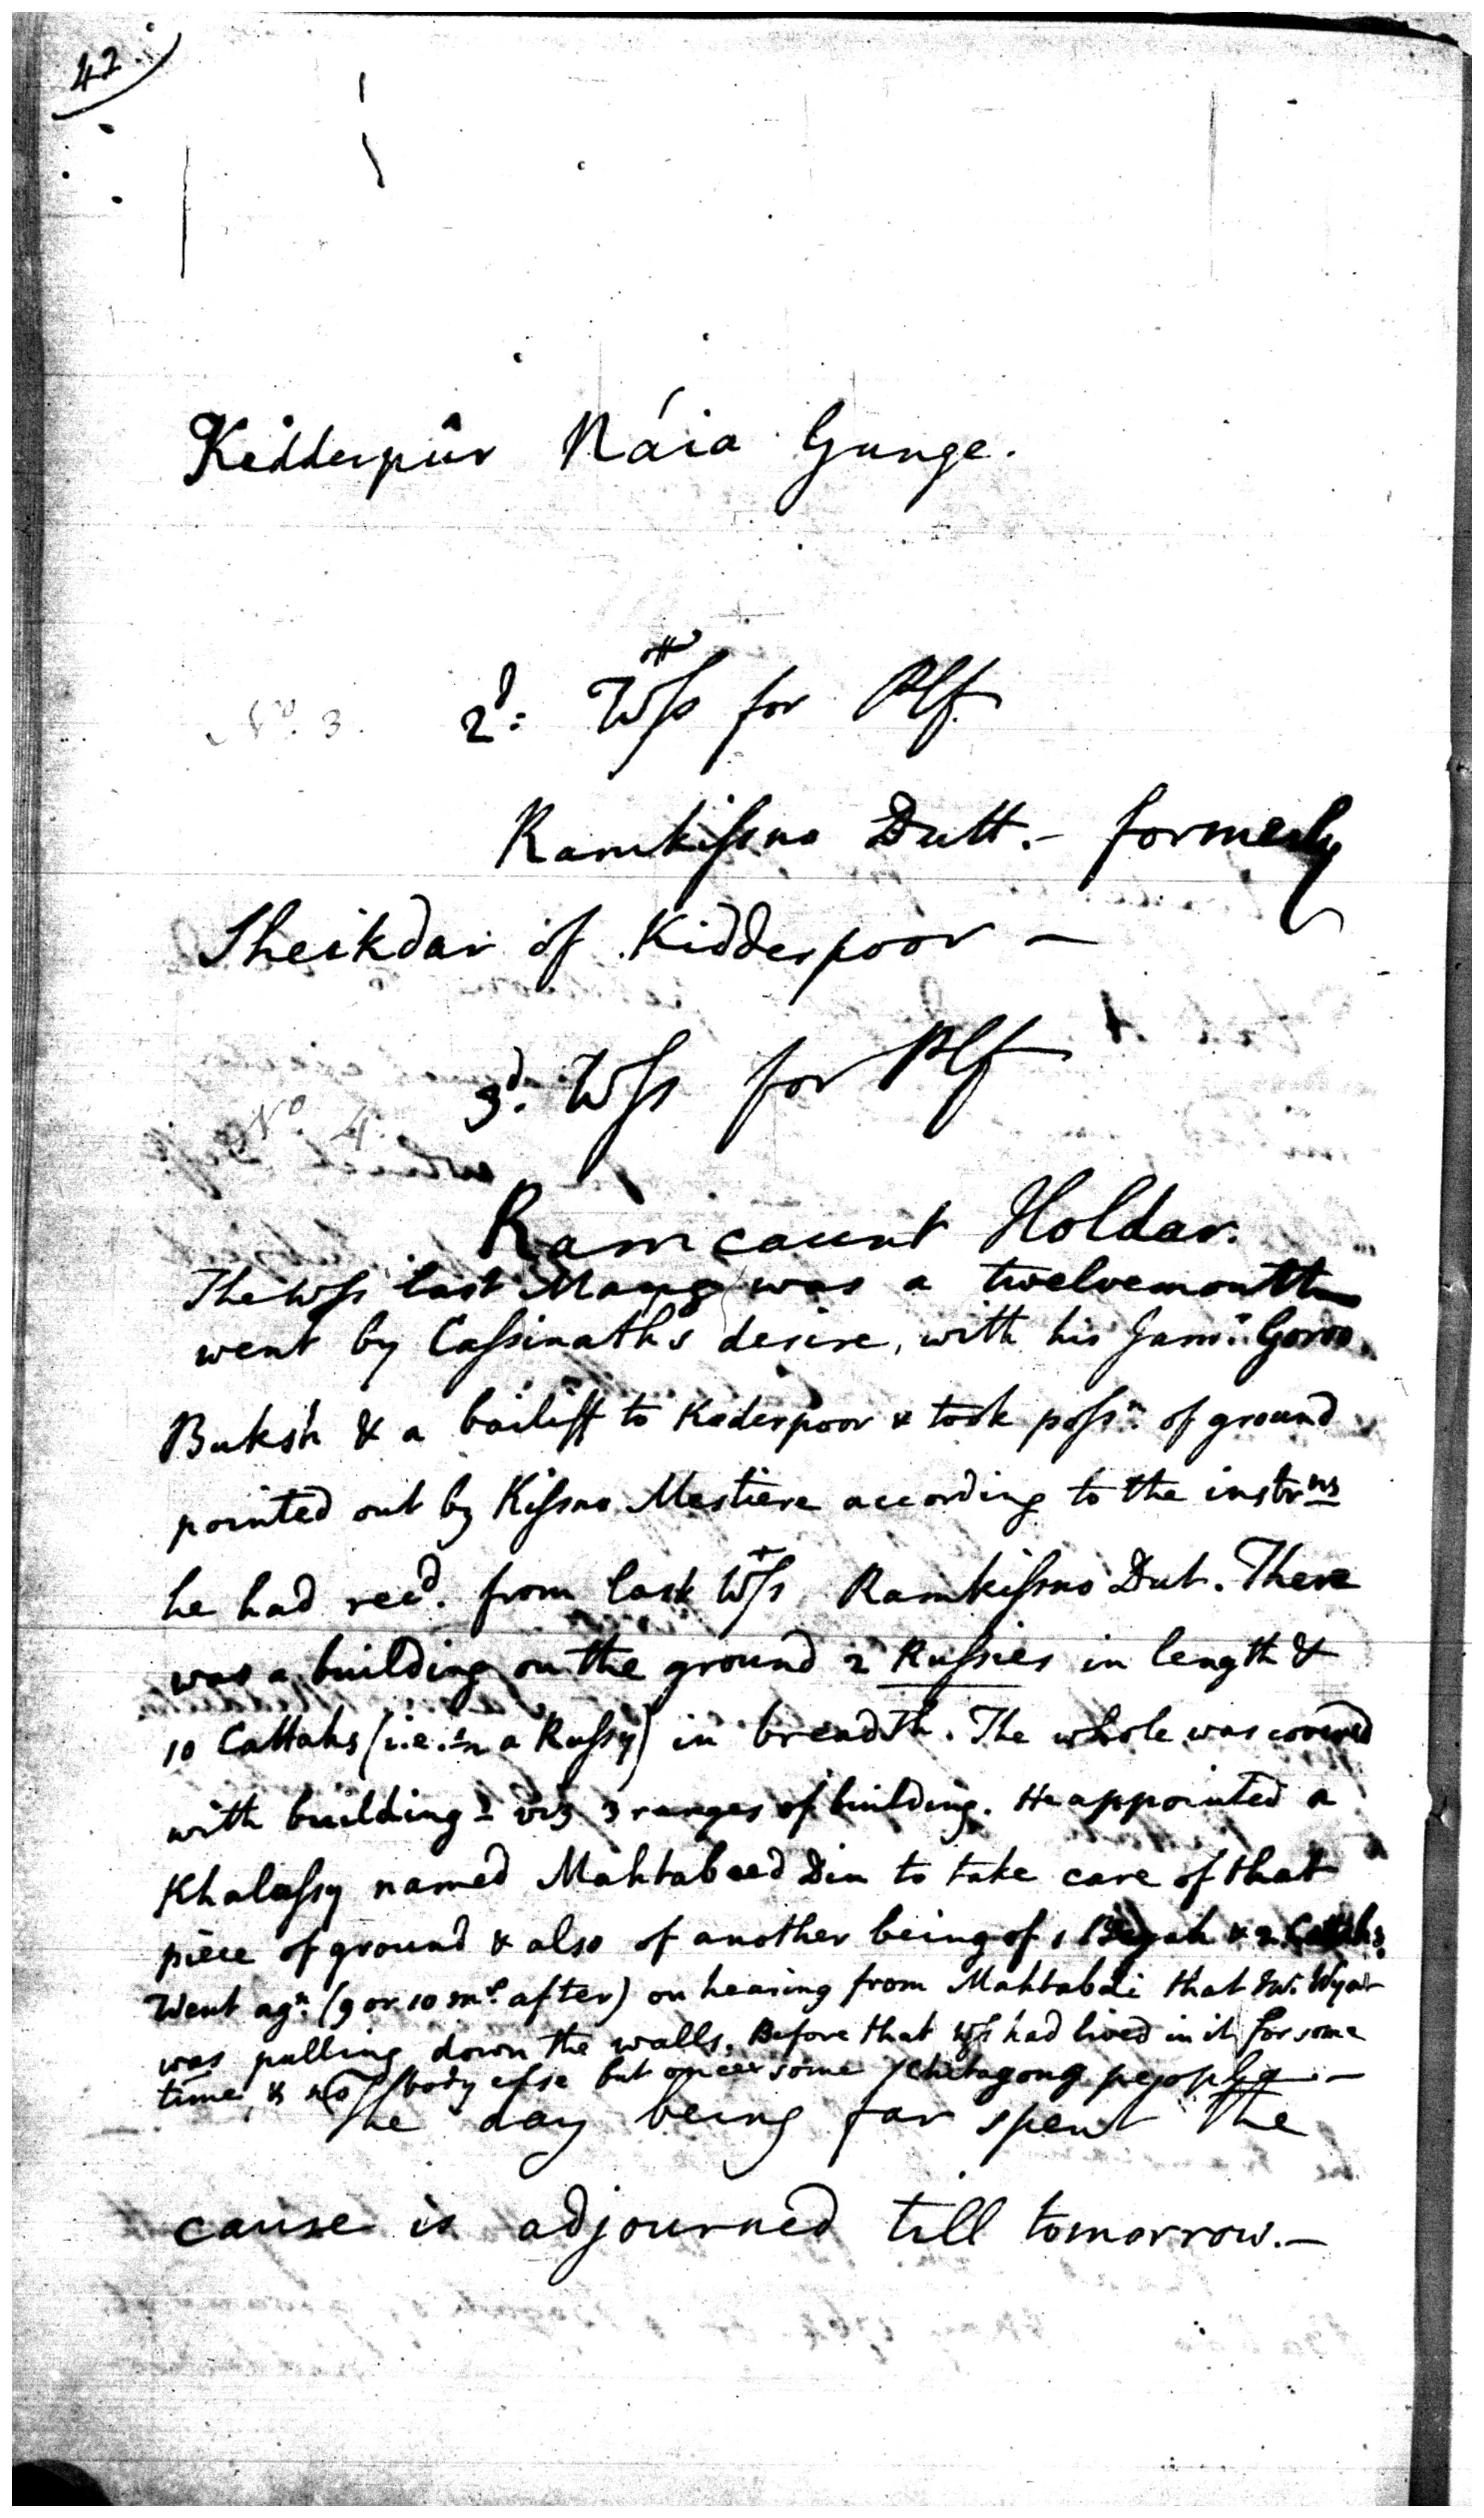 42
Kidderpûr Náia Gunge.
No. 3. 2d: Wss for Plf
Ramkissno Dutt. - formerly
Sheikdar of Kidderpoor -
No. 4. 3d. Wss for Plf
Ramcaunt Holdar.
The Wss last Maug was a twelvemonth
went by Cassinath's desire, with his Jamr. Goroo
Buksh & a bailiff to Kederpoor & took possn. of ground
pointed out by Kissno Mestiere according to the instrns
he had recd. from last Wss Ramkissno Dut. There
was a building on the ground 2 Russies in length &
10 Cattahs (i.e. ½ a Russy) in breadth. The whole was covered
with building - viz 3 ranges of building. He appointed a
Khalassy named Mahtab eed Din to take care of that
piece of ground & also of another being of 1 Begah & 2 Cattahs.
Went agn. (9 or 10 ms. after) on hearing from Mahtabdi that Mr. Wyat
was pulling down the walls. Before that Wss had lived in it for some
time, & no body else but once some Chitagong people. -
The day being far spent the
cause is adjourned till tomorrow. -